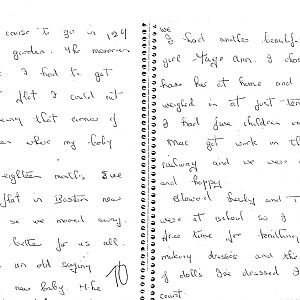 course to go in 124
garden. The
I had to get
flat I could not
that
when my baby
eighteen months &we
flat in Boston new
so we moved away
better for us all.
an old saying
new baby. The
70
we
I had another beautiful
girl Mary Ann. I
have has at home and
weighed in at just ten
I had five children
Mac got work on the
railway and we were
and happy
Edward Becky and T
were at school so I
free time for knitting
making dresses and the
of dolls I've dressed I
count.